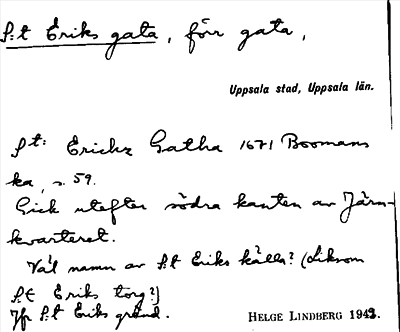 S:t Eriks gata, förr gata,
Uppsala stad, Uppsala län.
St: Erichz Gatha 1671 Boomans
ka, s. 59.
Gick utefter södra kanten av Järn-
kvarteret.
Väl namn av S:t Eriks källa? (Liksom
S:t Eriks torg?)
Jfr S:t Eriks gränd.
HELGE LINDBERG 1943.